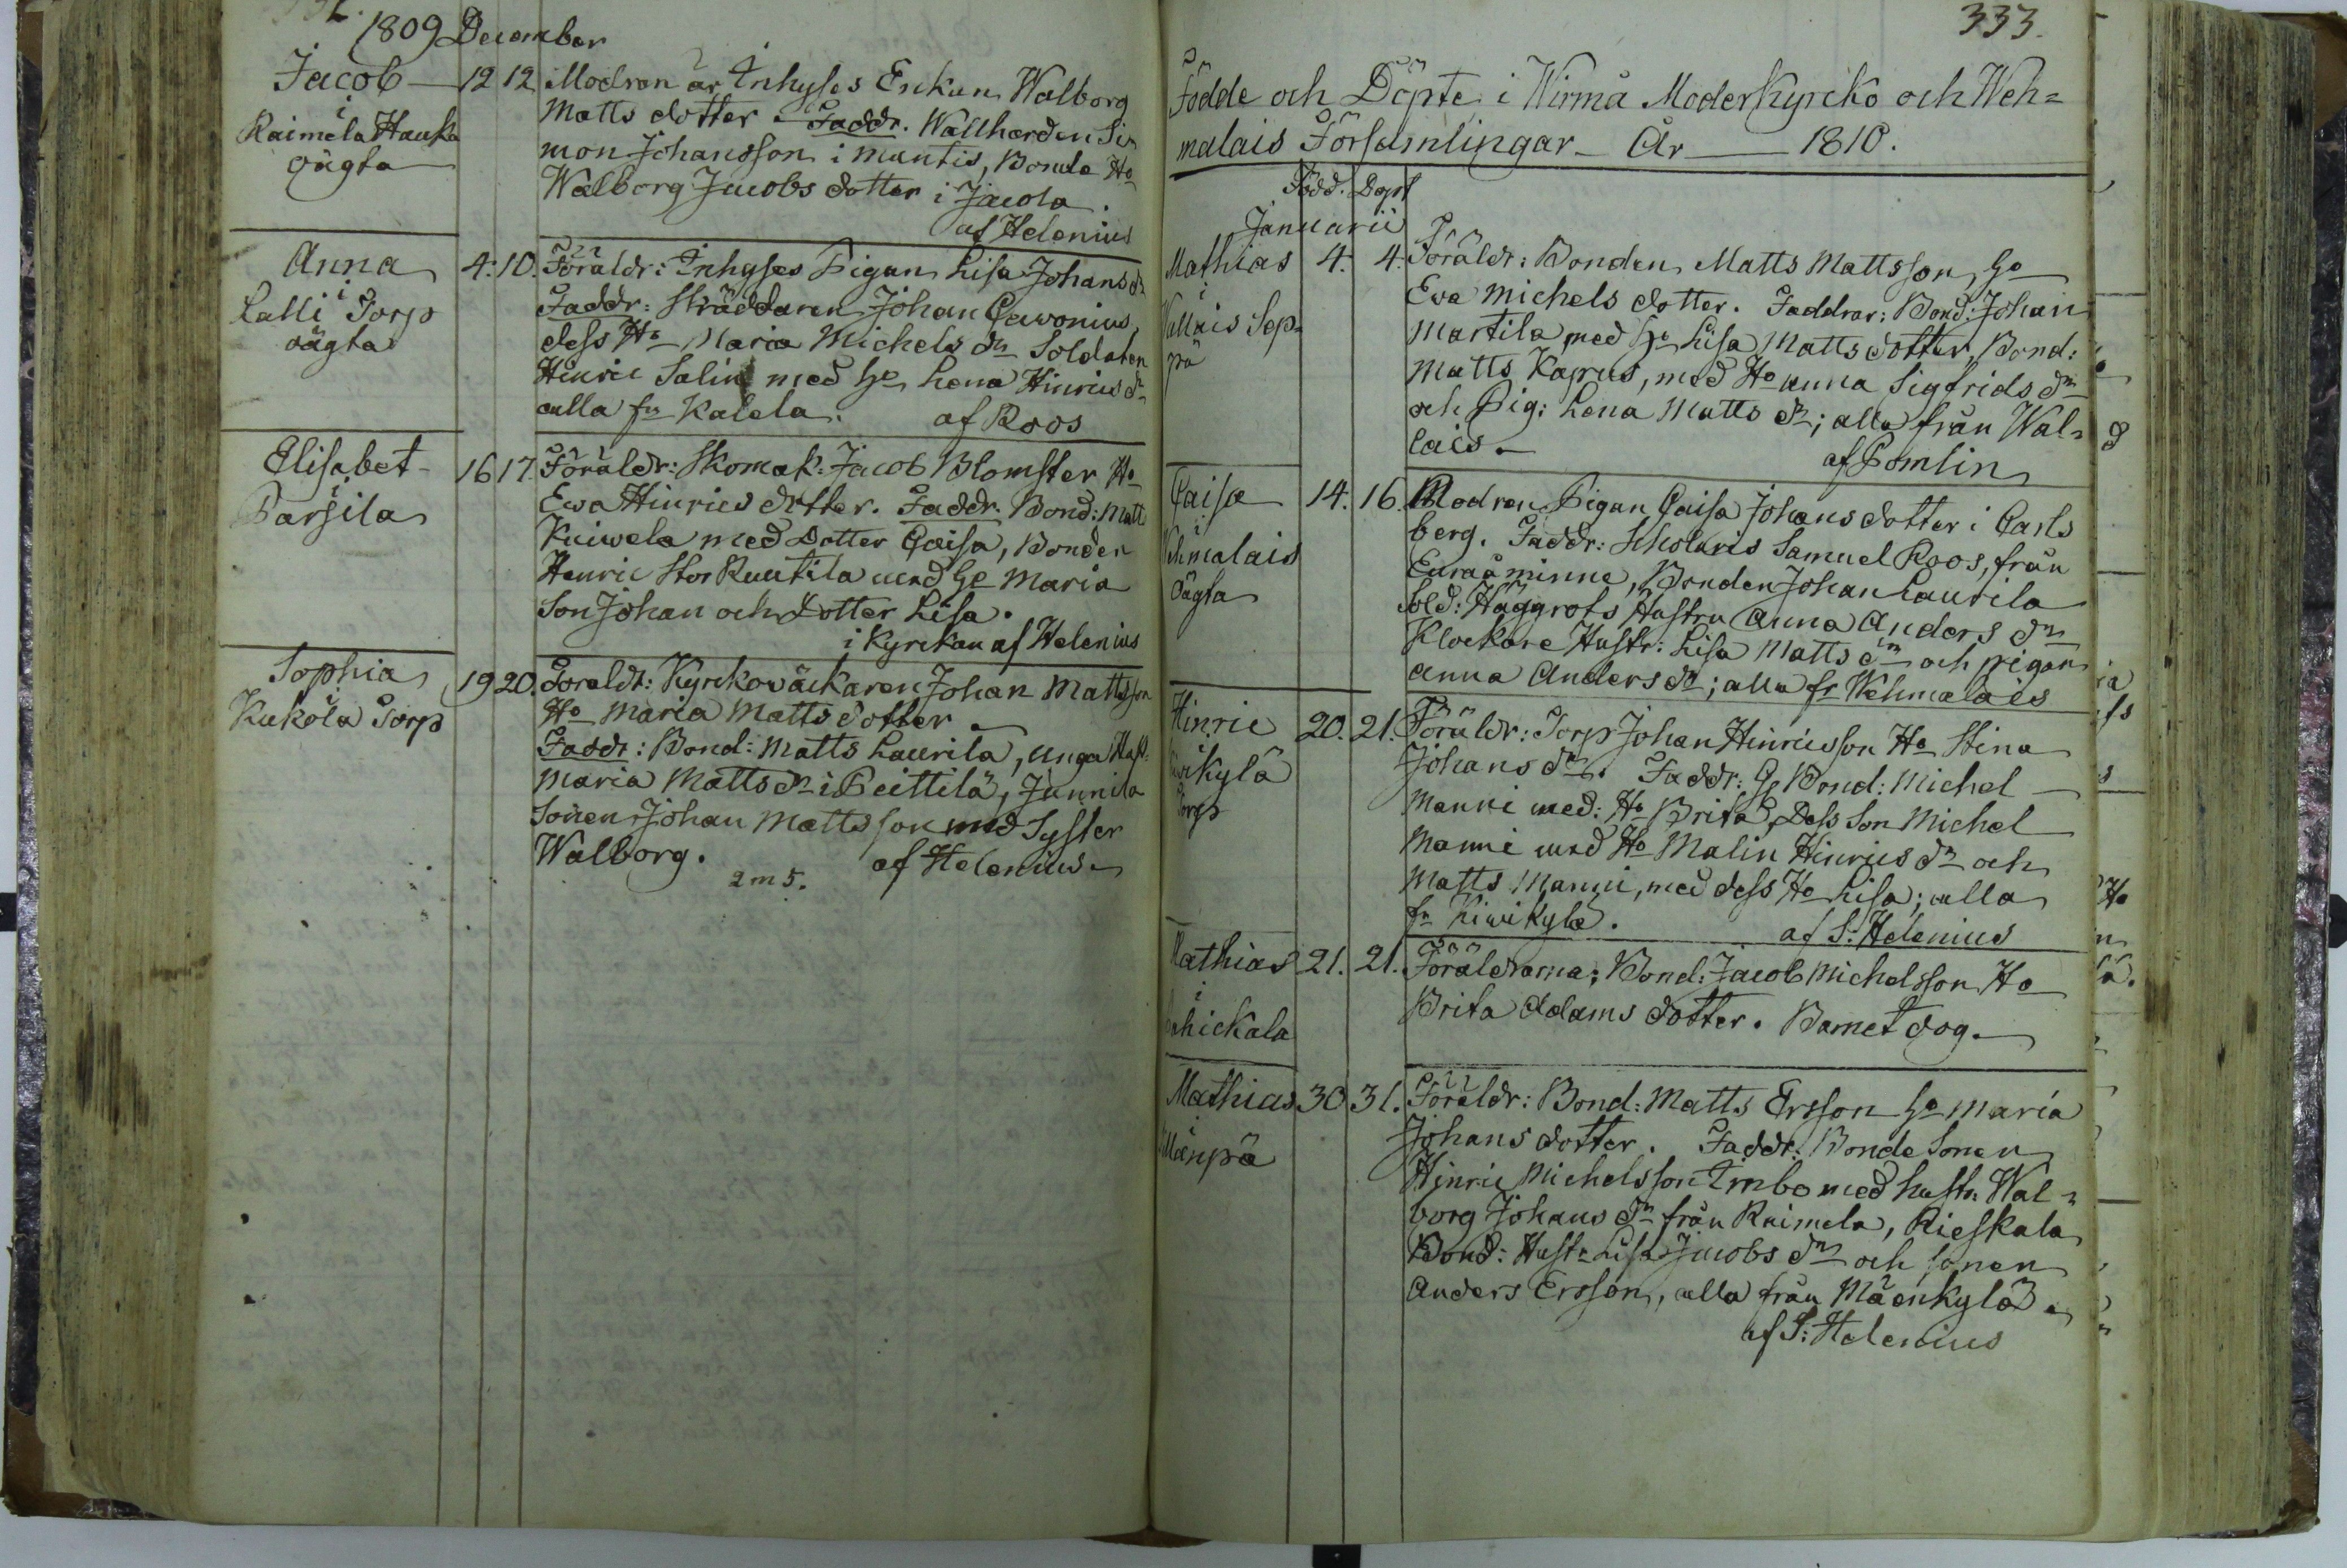 1809 December
Jacob — 12 12 Modren är Inhyses Enkan Walborg
i
Raimela Hauka
oägta
Matts dotter. Faddr. Wallharden Si-
mon Johansson i Mantis, Bonde Ho
Walborg Jacobs dotter i Jacola.
af Helenius
Anna 4. 10. Föräldr: Inhyses Pigan Lisa Johans dr
i
Lalli Torp
oägta
Faddr: Skräddaren Johan
dess Ho Maria Michels dr Soldaten
Hinric Salin med Ho Lena Hinrics dr
alla fr Kalela. af Roos
Elisabet 16 17. Föräldr: Skomak: Jacob Blomster Ho
i
Parsila
Ewa Hinrics dotter. Faddr. Bond: Matt
Kuiwela med Dotter Caisa, Bonden
Henric Stor Ruutila med Ho Maria
Son Johan och Dotter Lisa.
i Kyrckan af Helenius
Sophia 19 20. Foraldr: Kyrckowäckaren Johan Mattsson
i
Kukola Torp
Ho Maria Matts dotter.
Faddr: Bond: Matts Laurila, unga Hust:
Maria Matts dr i Peittilä, Junnila
Sonen Johan Mattsson med Syster
Walborg. af Helenius
2 m 5.
333.
Födde och Döpte i Wirmå Moderkyrcko och Weh=
malais Församlingar År 1810.
Född. Döpt
Januarii
Mathias 4. 4. Föräldr: Bonden Matts Mattsson, Ho
i
Wallais Sep-
pä
Eva Michels dotter. Faddrar: Bond: Johan
Martila med Ho Lisa Matts dotter, Bond:
Matts Kaprus, med Ho Anna Sigfrids dr
och Pig: Lena Matts dr; alla från Wal-
lais. af Pomlin
Caisa 14. 16. Modren Pigan Caisa Johans dotter i Carls
i
Wehmalais
Oägta
berg. Faddr: Scholaris Samuel Roos, från
Euraåminne, Bonden Johan Laurila
Sold: Häggrots Hustru Anna Anders dr
Klockare Hustr: Lisa Matts dr och pigan
Anna Anders dr; alla fr Wehmalais
Hinric 20. 21. Föräldr: Torp Johan Hinricsson Ho Stina
Kiwikylä
Torp
Johans dr. Faddr: G Bond: Michel
Manni med: Ho Brita, Dess Son Michel
Manni med Ho Malin Hinrics dr och
Matts Manni, med dess Ho Lisa; alla
fr Kiwikylä. af S: Helenius
Mathias 21. 21. Föräldrarna: Bond: Jacob Michelsson Ho
i
Brita Adams dotter. Barnet dog.
Mathias 30 31. Föräldr: Bond: Matts Ersson Ho Maria
i
Johans dotter. Faddr: Bonde Sonen
Hinric Michelsson Imbo med hustr: Wal-
borg Johans dr från Raimela, Rieskala
Bond: Hustr Lisa Jacobs dr och sonen
Anders Ersson, alla från Mäenkylä.
af S: Helenius